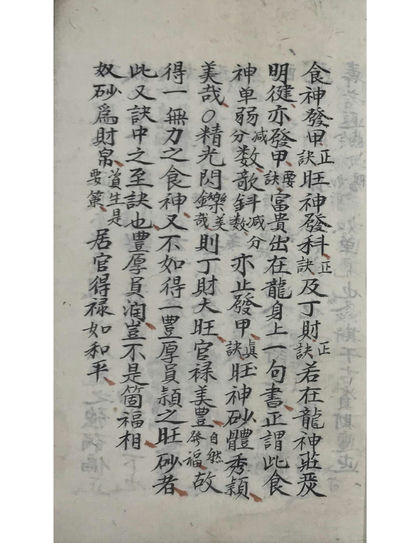 食神發甲訣正旺神發科訣正及丁財訣正若在龍神莊
明健亦發甲訣要富貴出在龍身上一句書正謂此食
神单弱減分数欹斜減分数亦止發甲訣真旺神砂體秀頴
美哉〇精光閃鑠美哉則丁財大旺官禄美豊自然發福故
得一無力之食神又不如得一豊厚員頴之旺砂者
此又訣中之至訣也豊厚員润豈不是箇福相
奴砂爲財帛資生是要第居官得禄如和平